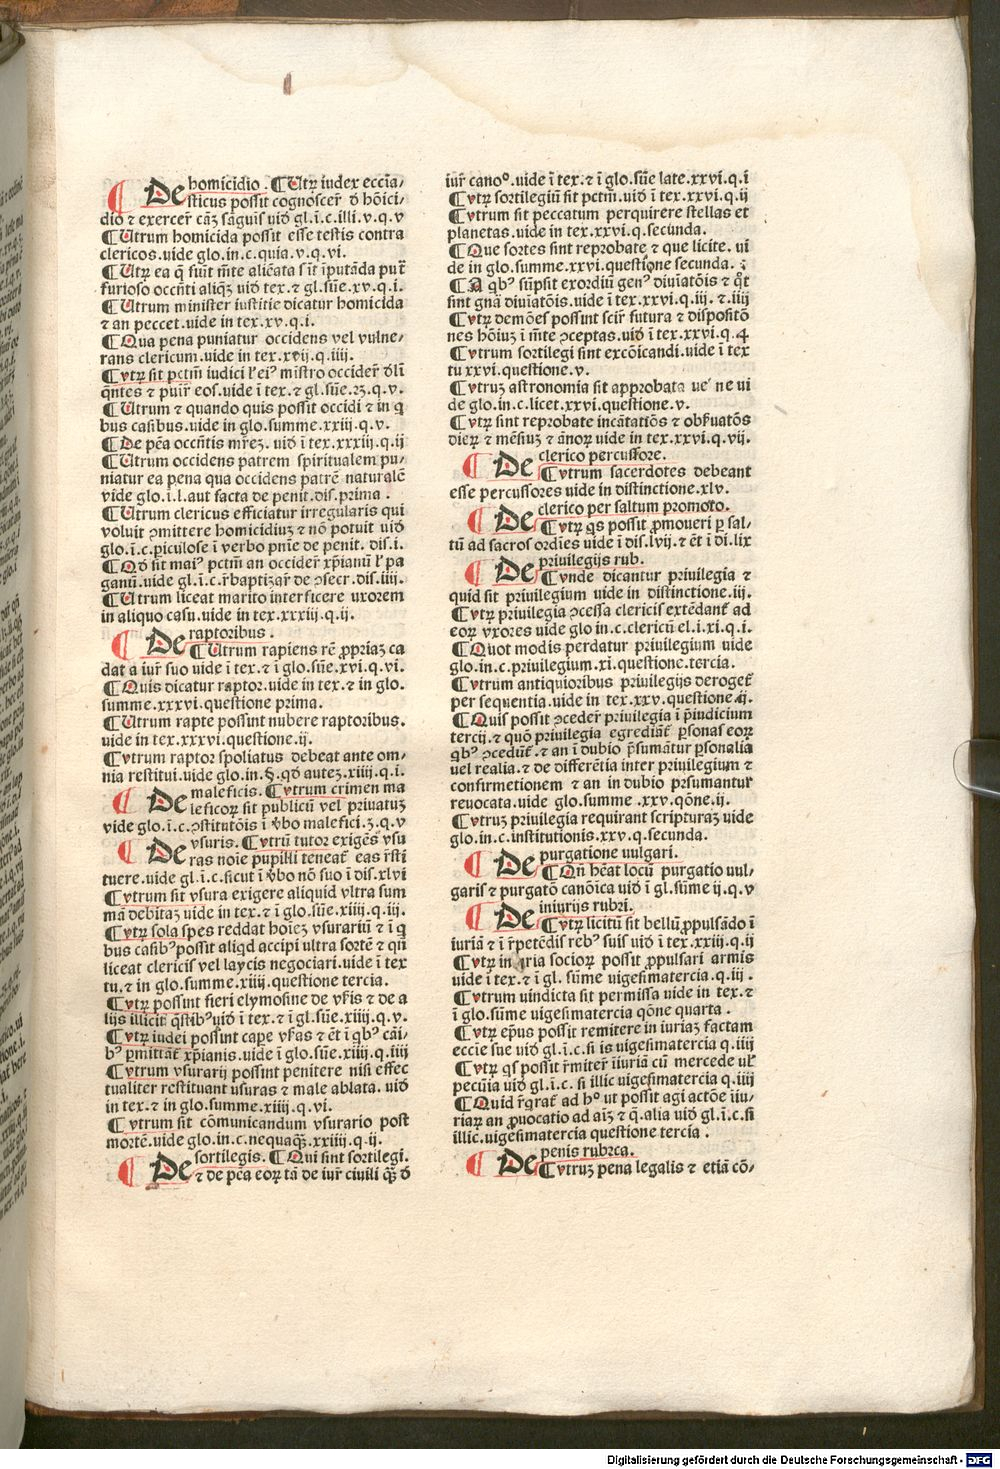 De homicidio. ¶Utꝝ iudex eccīa/
sticus possit cognoscer̄ ꝺ hōici/
dio ⁊ exercer̄ cāꝫ sāguīs uiꝺ gl.ī.c.illi.v.q.v
¶Utrum homicida possit esse testis contra
clericos.uide glo.in.c.quia.v.q.vi.
¶Utꝝ ea q̄ fiūt m̄te aliēata s̄it īputāda put̄
furioso occn̄ti aliq̄ꝫ uiꝺ tex.⁊ gl.sūe.xv.q.i.
¶Utrum minister iustitie dicatur homicida
⁊ an peccet.uide in tex.xv.q.i.
¶Qua pena puniatur occidens vel vulne/
rans clericum.uide in tex.xvij.q.iiij.
¶vtꝝ sit pctm̄ iudici ł eiꝰ mīstro occider̄ ꝺlī
q̄ntes ⁊ puir̄ eos.uide ī tex.⁊ gl.sūe.23.q.v.
¶Utrum ⁊ quando quis possit occidi ⁊ in q
bus casibus.uide in glo.summe.xxiij.q.v.
¶De pēa occn̄tis mr̄eꝫ. uiꝺ ī tex.xxxiij.q.ij
¶Utrum occidens patrem spiritualem pu/
niatur ea pena qua occidens patrē naturalē
vide glo.ī.l.aut facta de penit.dis.prima.
¶Utrum clericus efficiatur irregularis qui
voluit ꝯmittere homicidiuꝫ ⁊ nō potuit uiꝺ
glo.ī.c.periculose ī verbo pnīe de penit. dis.i.
¶Qꝺ sit maiꝰ pctm̄ an occider̄ xp̄ianū ł pa
ganū.uide gl.ī.c.r̄baptizar̄ de ꝯsecr.dis.iiij.
¶Utrum liceat marito interficere uxorem
in aliquo casu.uide in tex.xxxiij.q.ij.
De raptoribus.
¶Utrum rapiens rē ꝓpriaꝫ ca
dat a iur̄ suo uide ī tex.⁊ ī glo.sūe.xvi.q.vi.
¶Quis dicatur raptor.uide in tex.⁊ in glo.
summe.xxxvi.questione prima.
¶Utrum rapte possint nubere raptoribus.
uide in tex.xxxvi.questione.ij.
¶vtrum raptor spoliatus debeat ante om/
nia restitui.uide glo.in.§.qꝺ auteꝫ.xiiij.q.i.
De maleficis. ¶vtrum crimen ma
leficoꝝ sit publicū vel priuatuꝫ
vide glo.ī.c.ꝯstitutōis ī v̄bo malefici.3.q.v
De vsuris. ¶vtrū tutor exigēs vsu
ras noīe pupilli teneat̄ eas r̄sti
tuere.uide gl.ī.c.sicut ī v̄bo nō suo ī dis.xlvi
¶vtrum sit vsura exigere aliquid vltra sum
mā debitaꝫ uide in tex.⁊ ī glo.sūe.xiiij.q.iij.
¶vtꝝ sola spes reddat hoīeꝫ vsurariū ⁊ ī q
bus casibꝰ possit aliqꝺ accipi ultra sortē ⁊ qn̄
liceat clericis vel laycis negociari.uide ī tex
tu.⁊ in glo.summe.xiiij.questione tercia.
¶vtꝝ possint fieri elymosine de vr̄is ⁊ de a
lijs illicit̄ q̄stibꝰ uiꝺ ī tex.⁊ ī gl.sūe.xiiij.q.v.
¶vtꝝ iudei possint cape vr̄as ⁊ ēt ī qbꝰ cāi/
bꝰ ꝑmittāt̄ xp̄ianis.uide ī glo.sūe.xiiij.q.iiij
¶vtrum vsurarij possint penitere nisi effec
tualiter restituant usuras ⁊ male ablata. uiꝺ
in tex.⁊ in glo.summe.xiiij.q.vi.
¶vtrum sit cōmunicandum vsurario post
mortē.uide glo.in.c.nequaq̄ꝫ.xxiiij.q.ij.
De sortilegis. ¶Qui sint sortilegi.
⁊ de pēa eoꝝ tā de iur̄ ciuili q̄ꝫ ꝺ
iur̄ canoº.uide ī tex.⁊ ī glo.sūe late.xxvi.q.i
¶vtꝝ sortilegiū sit pctm̄.uiꝺ ī tex.xxvi.q.ij
¶vtrum sit peccatum perquirere stellas et
planetas.uide in tex.xxvi.q.secunda.
¶Que sortes sint reprobate ⁊ que licite. ui
de in glo.summe.xxvi.questione secunda.
¶A qbꝰ sūpsit exordiū genꝰ diuiātōis ⁊ qͦt
sint gn̄a diuiatōis.uide ī tex.xxvi.q.iij.⁊.iiij
¶vtꝝ demōes possint scir̄ futura ⁊ dispositō
nes hōiuꝫ ī m̄te ꝯceptas.uiꝺ ī tex.xxvi.q.4
¶vtrum sortilegi sint excōicandi.uide ī tex
tu xxvi.questione.v.
¶vtruꝫ astronomia sit approbata ueˡ ne ui
de glo.in.c.licet.xxvi.questione.v.
¶vtꝝ sint reprobate incātatiōs ⁊ obſ̄uatōs
dieꝝ ⁊ mēsiuꝫ ⁊ ānoꝝ uide in tex.xxvi.q.vij.
De clerico percussore.
¶vtrum sacerdotes debeant
esse percussores uide in distinctione.xlv.
De clerico per saltum promoto.
¶vtꝝ qs possit ꝓmoueri ꝑ sal/
tū ad sacros ordīes uide ī dis.lvij.⁊ ēt ī di.lix
De priuilegijs rub.
¶vnde dicantur priuilegia ⁊
quid sit priuilegium uide in distinctione.iij.
¶vtꝝ priuilegia ꝯcessa clericis extēdant̄ ad
eoꝝ vxores uide glo in.c.clericū el.i.xi.q.i.
¶Quot modis perdatur priuilegium uide
glo.in.c.priuilegium.xi.questione.tercia.
¶vtrum antiquioribus priuilegijs deroget̄
per sequentia.uide in tex.xxv.questione.ij.
¶Quis possit ꝯceder̄ priuilegia ī p̄iudicium
tercij.⁊ quō priuilegia egrediāt̄ ꝑsonas eoꝝ
qbꝰ ꝯcedūt̄.⁊ an ī dubio p̄sumātur ꝑsonalia
uel realia.⁊ de differētia inter priuilegium ⁊
confirmetionem ⁊ an in dubio pr̄sumantur
reuocata.uide glo.summe.xxv.qōne.ij.
¶vtruꝫ priuilegia requirant scripturaꝫ uide
glo.in.c.institutionis.xxv.q.secunda.
De purgatione uulgari.
¶Qn̄ hēat locū purgatio uul/
garis ⁊ purgatō canōica uiꝺ ī gl.sūme ij.q.v
De iniurijs rubri.
¶vtꝝ licitū sit bellū ꝓpulsādo ī
iuriā ⁊ ī r̄petēdis rebꝰ suis uiꝺ ī tex.xxiij.q.ij
¶vtꝝ in ria socioꝝ possit ꝓpulsari armis
uide ī tex.⁊ ī gl. sūme uigesimatercia.q.iij.
¶vtrum uindicta sit permissa uide in tex.⁊
ī glo.sūme uigesimatercia qōne quarta.
¶vtꝝ ep̄us possit remitere in iuriaꝫ factam
eccīe sue uiꝺ gl.ī.c.si is uigesimatercia q.iiij
¶vtꝝ qs possit r̄miter̄ īiuriā cū mercede uł
pecūia uiꝺ gl.ī.c. si illic uigesimatercia q.iiij
¶Quid r̄qrat̄ ad hº ut possit agi actōe īiu/
riaꝝ an ꝓuocatio ad aīꝫ ⁊ q̄.alia uiꝺ gl.ī.c.si
illic.uigesimatercia questione tercia.
De penis rubrca.
¶vtruꝫ pena legalis ⁊ etiā cō/
Digitalisierung gefördert durch die Deutsche Forschungsgemeinschaft - DFG